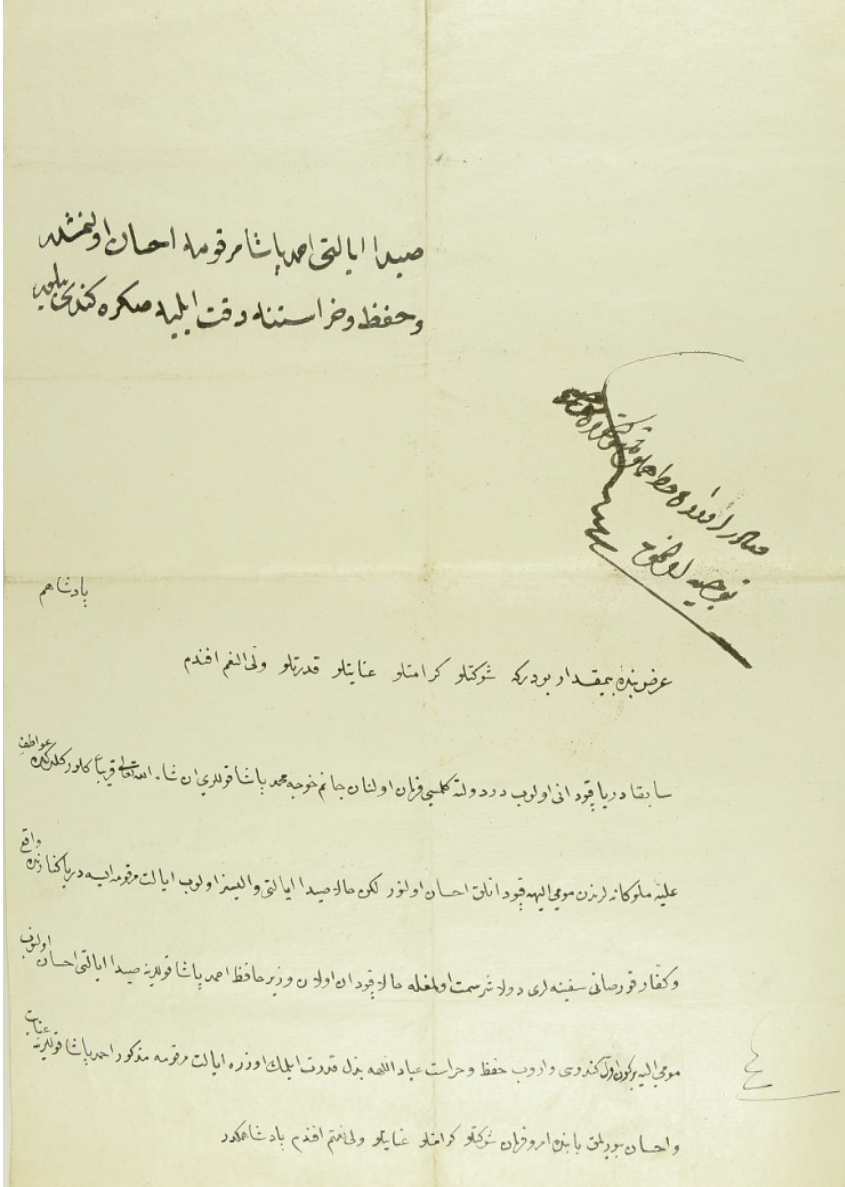 صيدا ايالتى احمد پاشا مرقومه احسان اولنمشدر
و حفظ و حراستنه دقت ايليه صكره كندى بيلور
صادر اولان خط همايون شوكتمقرون موجبنجه
توجيه اولنمق
پادشاهم
عرض بندۀ بيمقدار بودركه شوكتلو كرامتلو عنايتلو قدرتلو ولى النعم افندم
سابقا دريا قپودانى اولوب در دولته كلمسى فرمان اولنان جانم خوجه محمد پاشا قوللرى ان شاء الله تعالى قريباً كلور كلدكده عواطف
عليۀ ملوكانه لرندن مومى اليهه قپودانلق احسان اولنور لكن حالا صيدا ايالتى واليسز اولوب ايالت مرقومه ايسه دريا كنارنده واقع
و كفار قورصانى سفينه لرى دولاشور سمت اولمغله حالا قپودان اولان وزير حافظ احمد پاشا قوللرينه صيدا ايالتى احسان اولنوب
مومى اليه بركون اول كندوسى واروب حفظ و حراست عباد اللهه بذل قدرت ايلمك اوزره ايالت مرقومه مذكور احمد پاشا قوللرينه عنايت
و احسان بيورلمق بابنده امر و فرمان شوكتلو كرامتلو عنايتلو ولى نعمتم افندم پادشاهمكدر